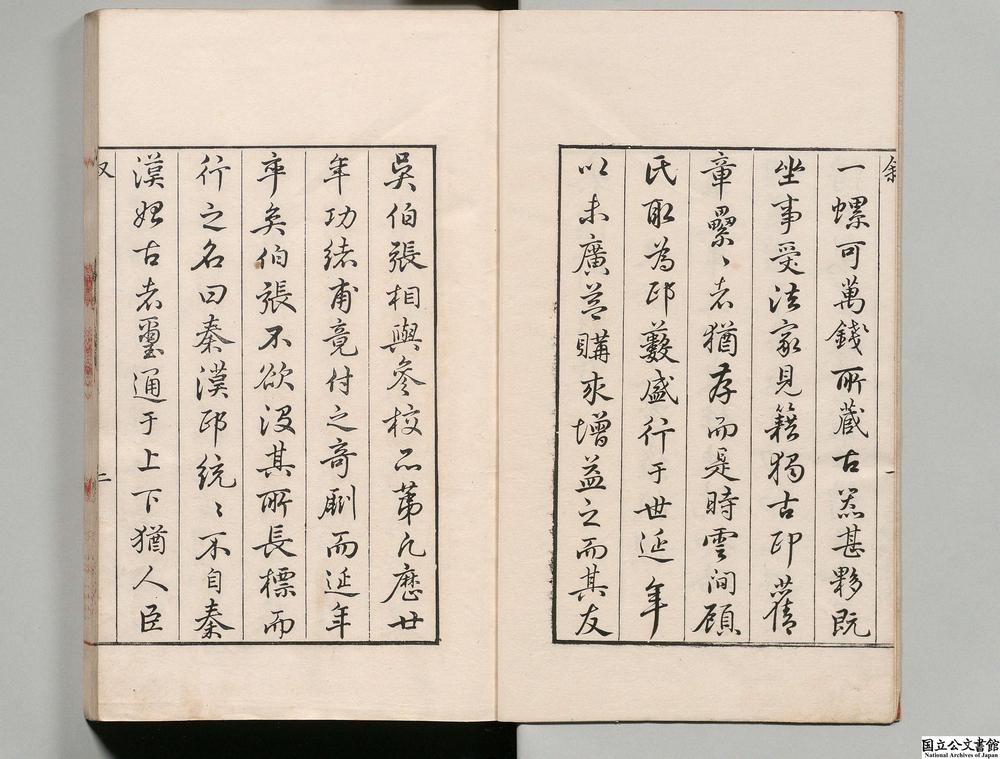 叙
一螺可萬錢所蔵古器甚夥既
坐事受法家見籍獨古印舊
章纍〻者猶存而是時雲間顧
氏取為印藪盛行于世延年
以未廣益購求增益之而其友
一
吳伯張相與參校品第凡歷廿
年功緒甫竟付之奇劂而延年
卒矣伯張不欲没其所長標而
行之名曰秦漢印統〻不自秦
漢始古者璽通于上下猶人臣
叙
二
国立公文書館
National Archives of Japan